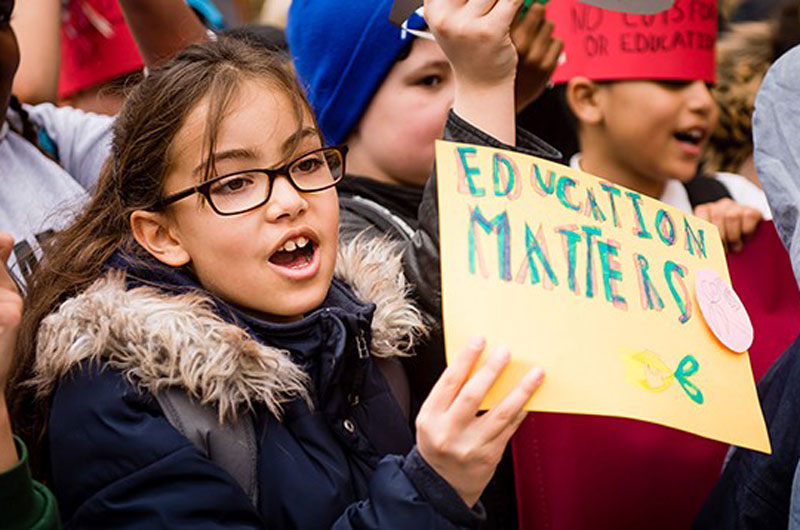 NO CUTS FOR
OR EDUCATION
EDUCATION
MATTERS